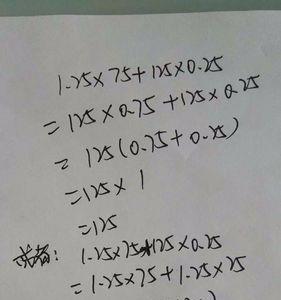 1.25×75+125×0.25
=125×0.75+125×0.25
=125(0.75+0.25)
=125×1
=125
1.25×75+125×0.25
=1.25×75+1.25×25